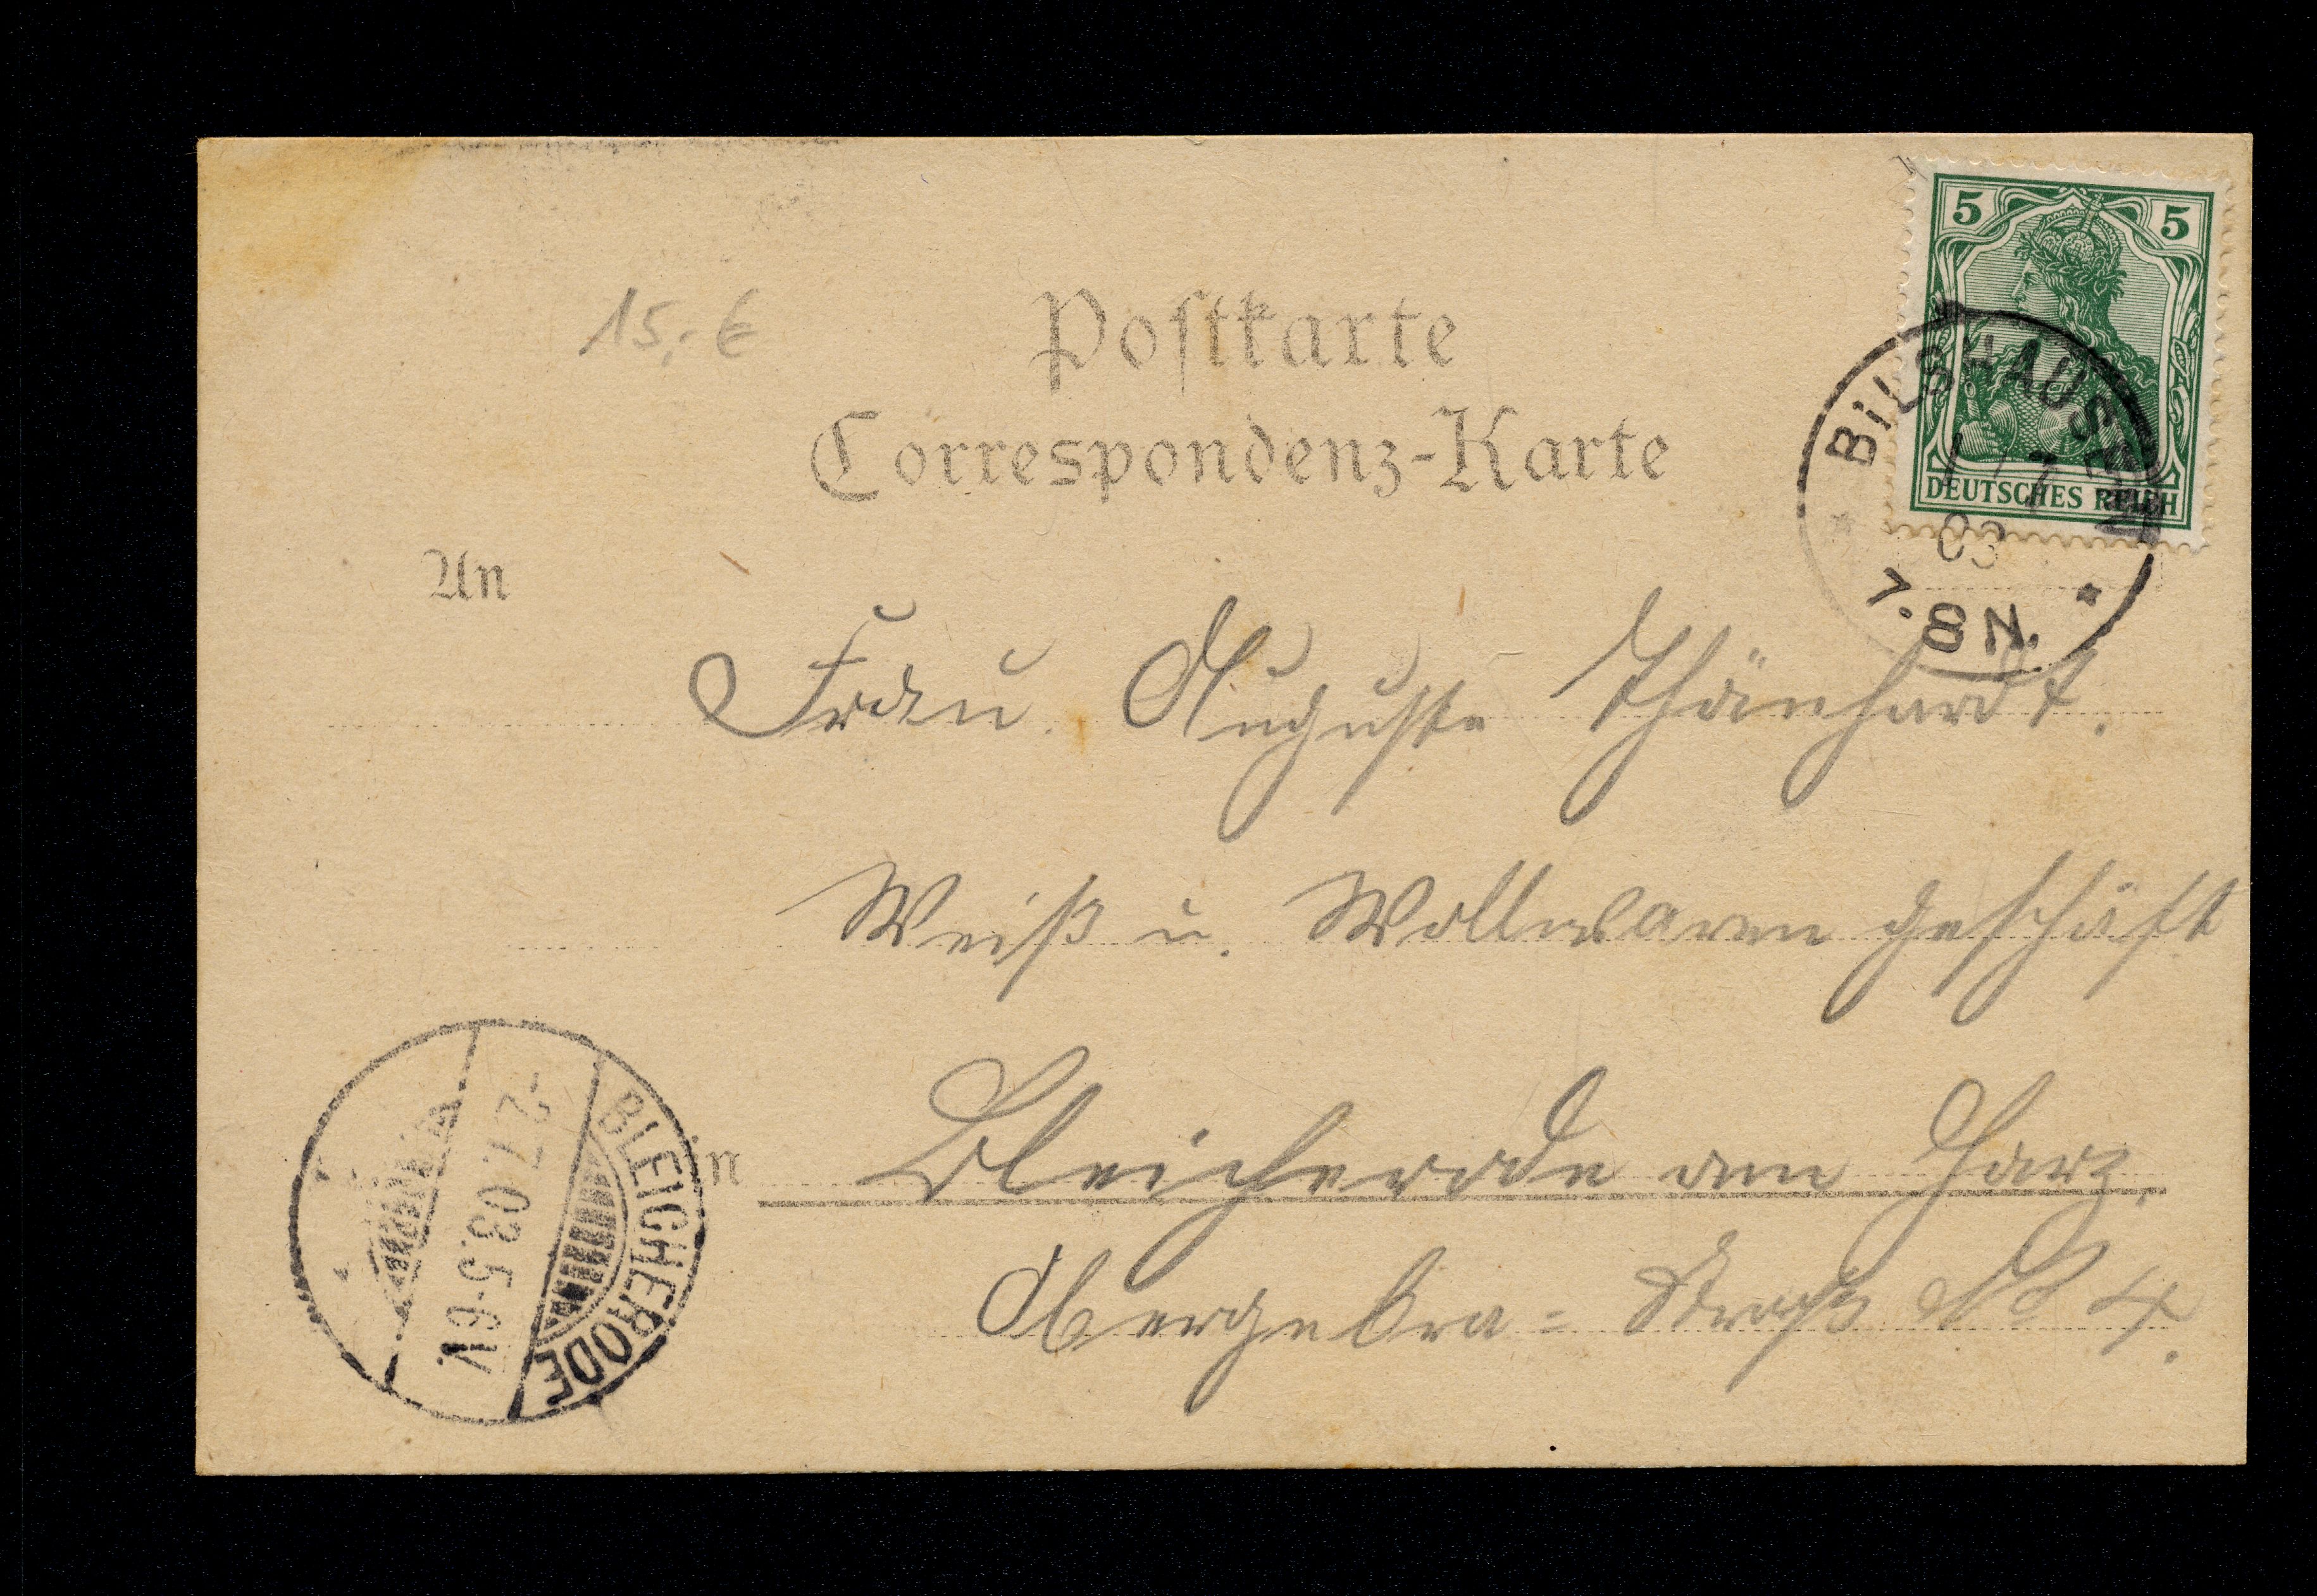 15,- €
Postkarte
Correspondenz-Karte
5 5
DEUTSCHES REICH
BILSHAUSEN
1 7
03
7. 8 N.
An
Frau Auguste Thänhardt.
Weiß u. Wollwaren geschäft
in Bleicherode am Harz.
Obergebra = Straße No 4.
BLEICHERODE
-2.7.03.5-6V.